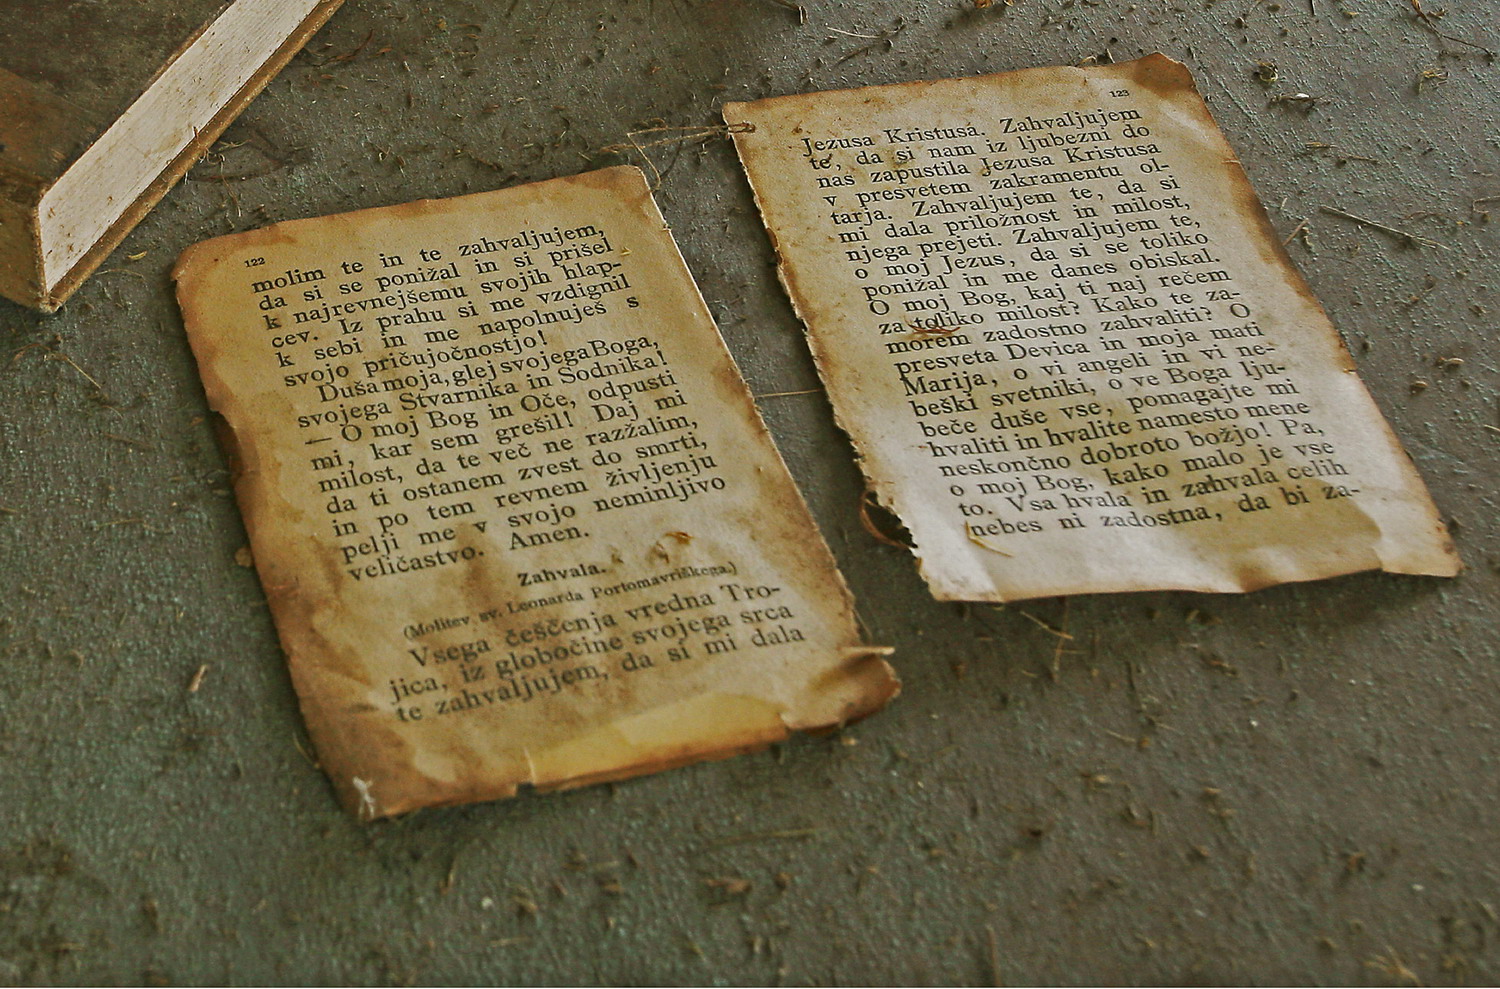 122
molim te in te zahvaljujem,
da si se ponižal in si prišel
k najrevnejšemu svojih hlap-
cev. Iz prahu si me vzdignil
k sebi in me napolnuješ s
svojo pričujočnostjo!
Duša moja, glej svojega Boga,
svojega Stvarnika in Sodnika!
— O moj Bog in Oče, odpusti
mi, kar sem grešil! Daj mi
milost, da te več ne razžalim,
da ti ostanem zvest do smrti,
in po tem revnem življenju
pelji me v svojo neminljivo
veličastvo. Amen.
Zahvala.
(Molitev sv. Leonarda Portomavriškega.)
Vsega češčenja vredna Tro-
jica, iz globočine svojega srca
te zahvaljujem, da si mi dala
123
Jezusa Kristusa. Zahvaljujem
te, da si nam iz ljubezni do
nas zapustila Jezusa Kristusa
v presvetem zakramentu ol-
tarja. Zahvaljujem te, da si
mi dala priložnost in milost,
njega prejeti. Zahvaljujem te,
o moj Jezus, da si se toliko
ponižal in me danes obiskal.
O moj Bog, kaj ti naj rečem
za toliko milost? Kako te za-
morem zadostno zahvaliti? O
presveta Devica in moja mati
Marija, o vi angeli in vi ne-
beški svetniki, o ve Boga lju-
beče duše vse, pomagajte mi
hvaliti in hvalite namesto mene
neskončno dobroto božjo! Pa,
o moj Bog, kako malo je vse
to. Vsa hvala in zahvala celih
nebes ni zadostna, da bi za-